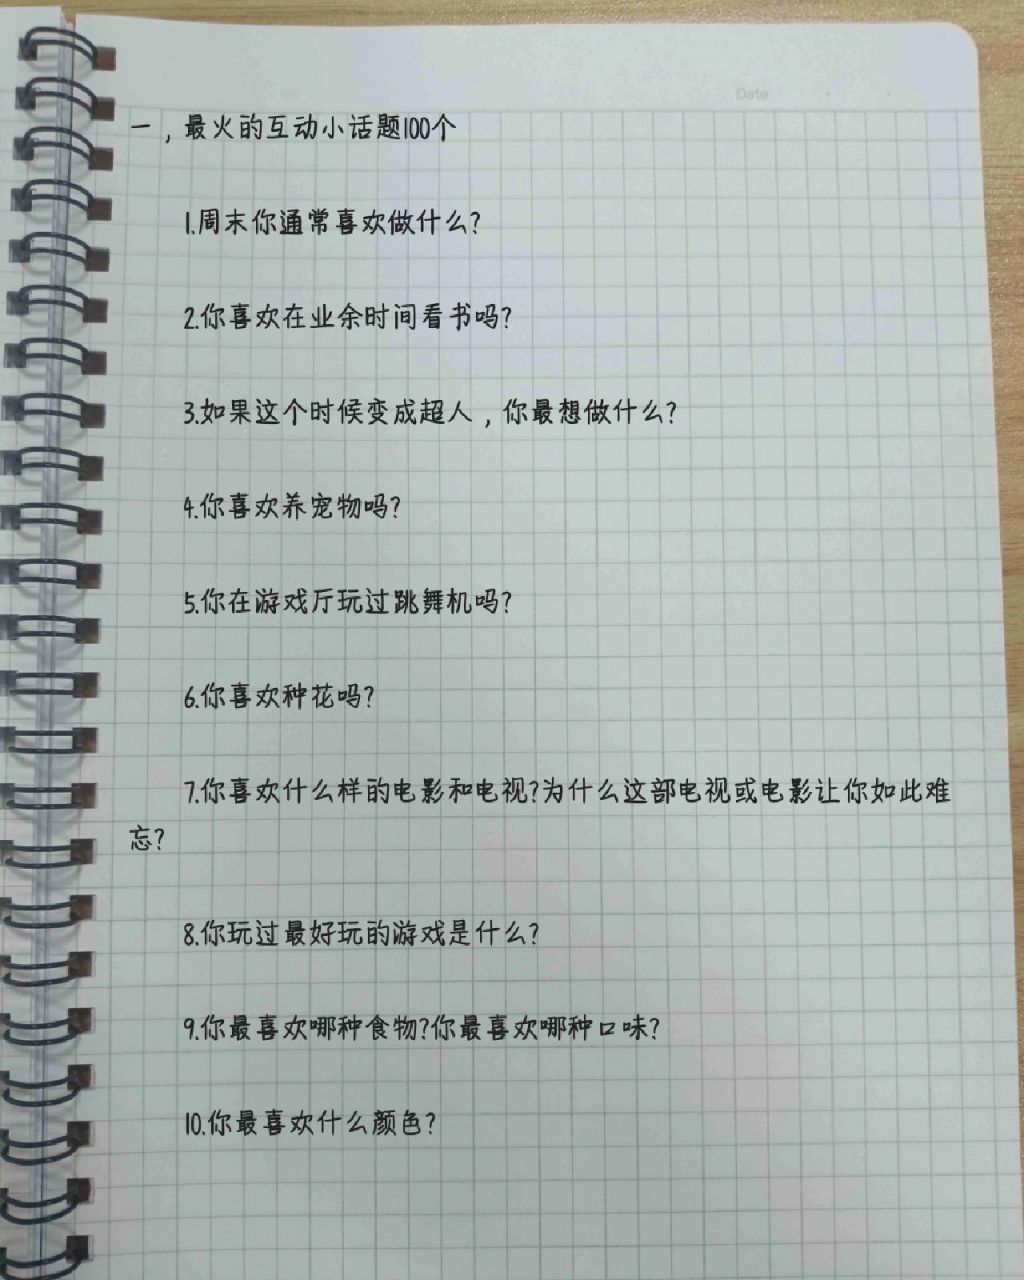 Date
一，最火的互动小话题100个
1.周末你通常喜欢做什么?
2.你喜欢在业余时间看书吗?
3.如果这个时候变成超人，你最想做什么?
4.你喜欢养宠物吗?
5.你在游戏厅玩过跳舞机吗?
6.你喜欢种花吗?
7.你喜欢什么样的电影和电视?为什么这部电视或电影让你如此难
忘?
8.你玩过最好玩的游戏是什么?
9.你最喜欢哪种食物?你最喜欢哪种口味?
10.你最喜欢什么颜色?